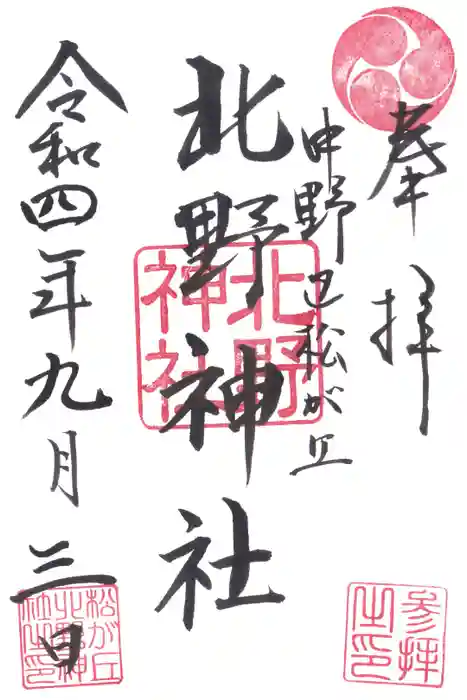 奉拝
中野区松が丘
北野神社
令和四年九月三日
北野神社
参拝之印
松が丘北野神社之印